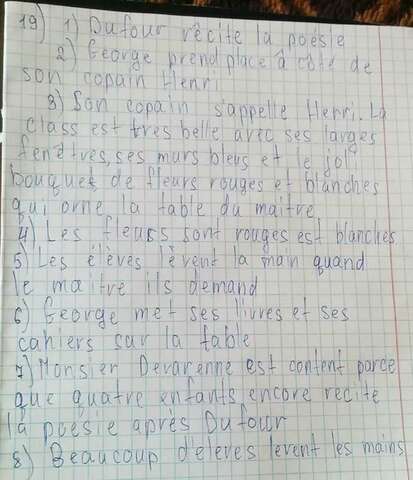 19) 1) Dufour récite la poésie
2) George prend place à côté de
son copain Henri
3) Son copain s'appelle Henri. La
class est tres belle avec ses larges
fenêtres, ses murs bleus et le joli
bouquet de fleurs rouges et blanches
qui orne la table du maitre
4) Les fleurs sont rouges est blanches
5) Les élèves lèvent la man quand
le maitre ils demand
6) George met ses livres et ses
cahiers sur la table
7) Monsier Devarenne est content parce
que quatre enfants encore recite
la poésie après Dufour
8) Beaucoup d'eleves levent les mains